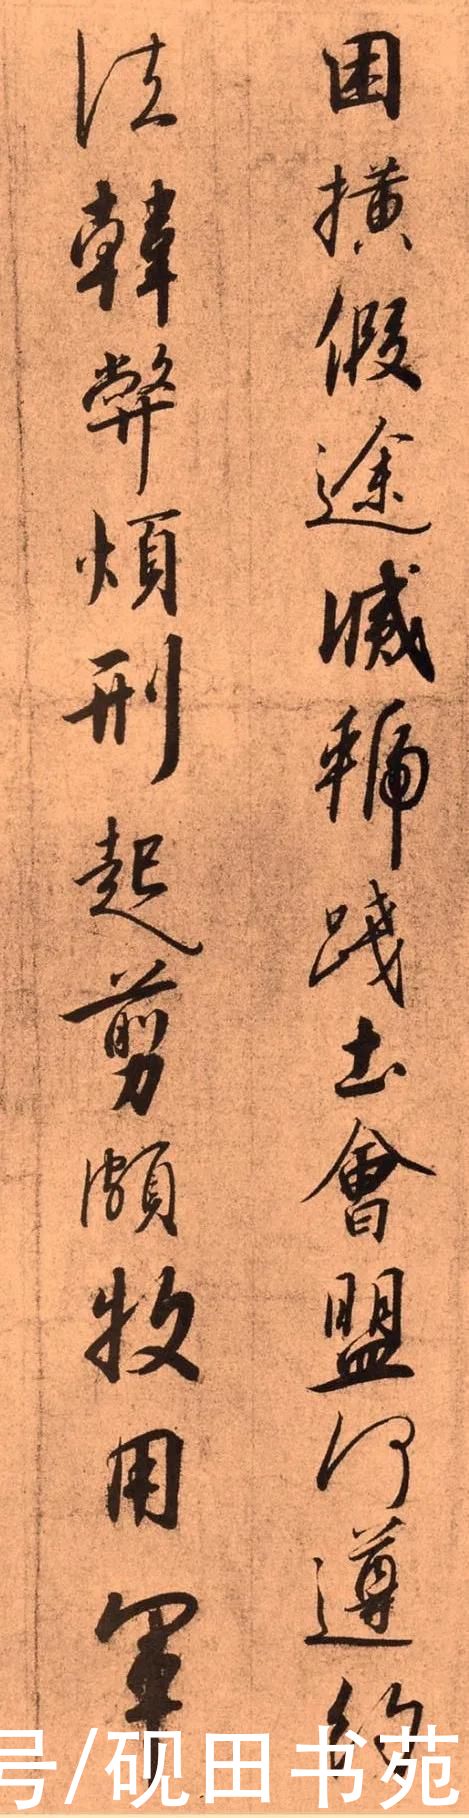 困橫假途滅虢踐土會盟何遵約
法韓弊煩刑起翦頗牧用軍
号/砚田书苑